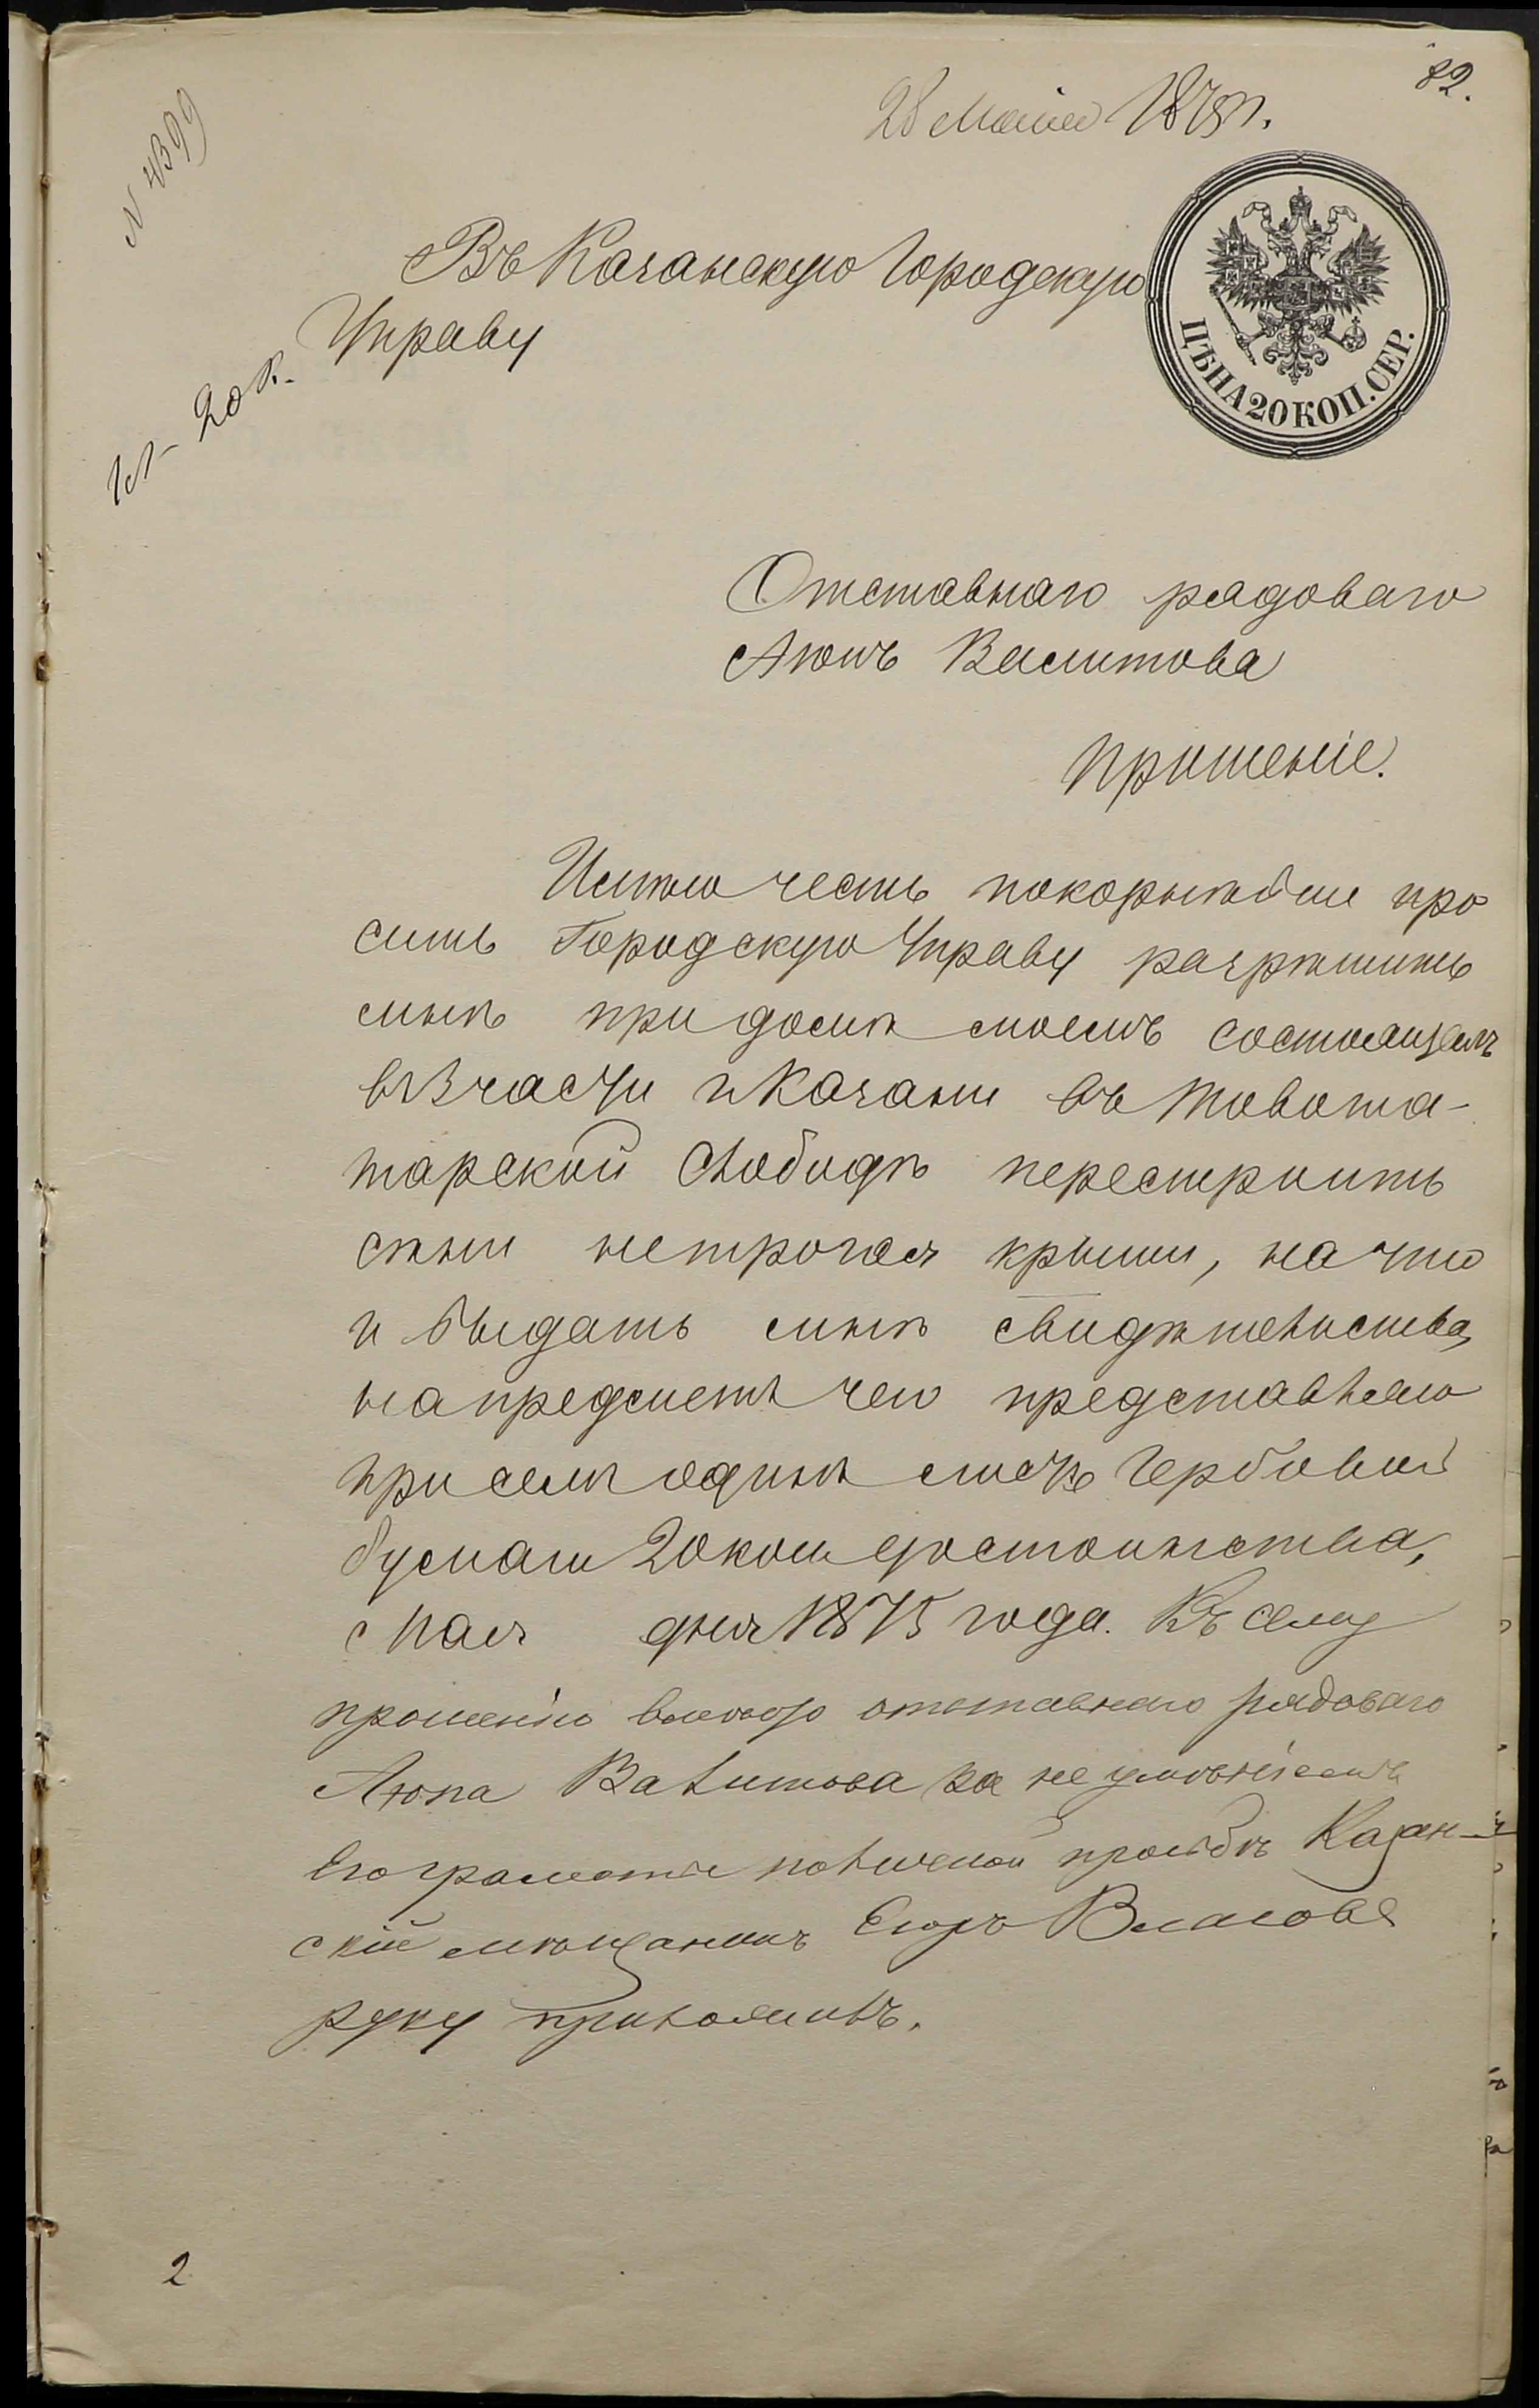 82.
28 Маия 1875 г.
N 4399
Въ Казанскую Городскую
Управу
1 л - 20 к.
ЦѢНА 20 КОП. СЕР.
Отставнаго рядоваго
Аюпъ Валитова
прошеніе.
Имѣю честь покорнѣйше про
сить Городскую Управу разрѣшить
мнѣ при домѣ моемъ состоящемъ
въ 5 части г Казани въ Новота-
тарской Слободѣ перестроить
стѣны нетрогая крыши, на что
и выдать мнѣ свидѣтельства,
на предметъ чего представляю
при семъ одинъ листъ гербовой
бумаги 20 коп достоинства,
Мая дня 1875 года. Къ сему
прошенію вместо отставнаго рядоваго
Аюпа Валитова за не умѣніемъ
его грамоте по личной прозьбѣ Казан-
ский мещанинъ Егоръ Власовъ
руку приложилъ.
2